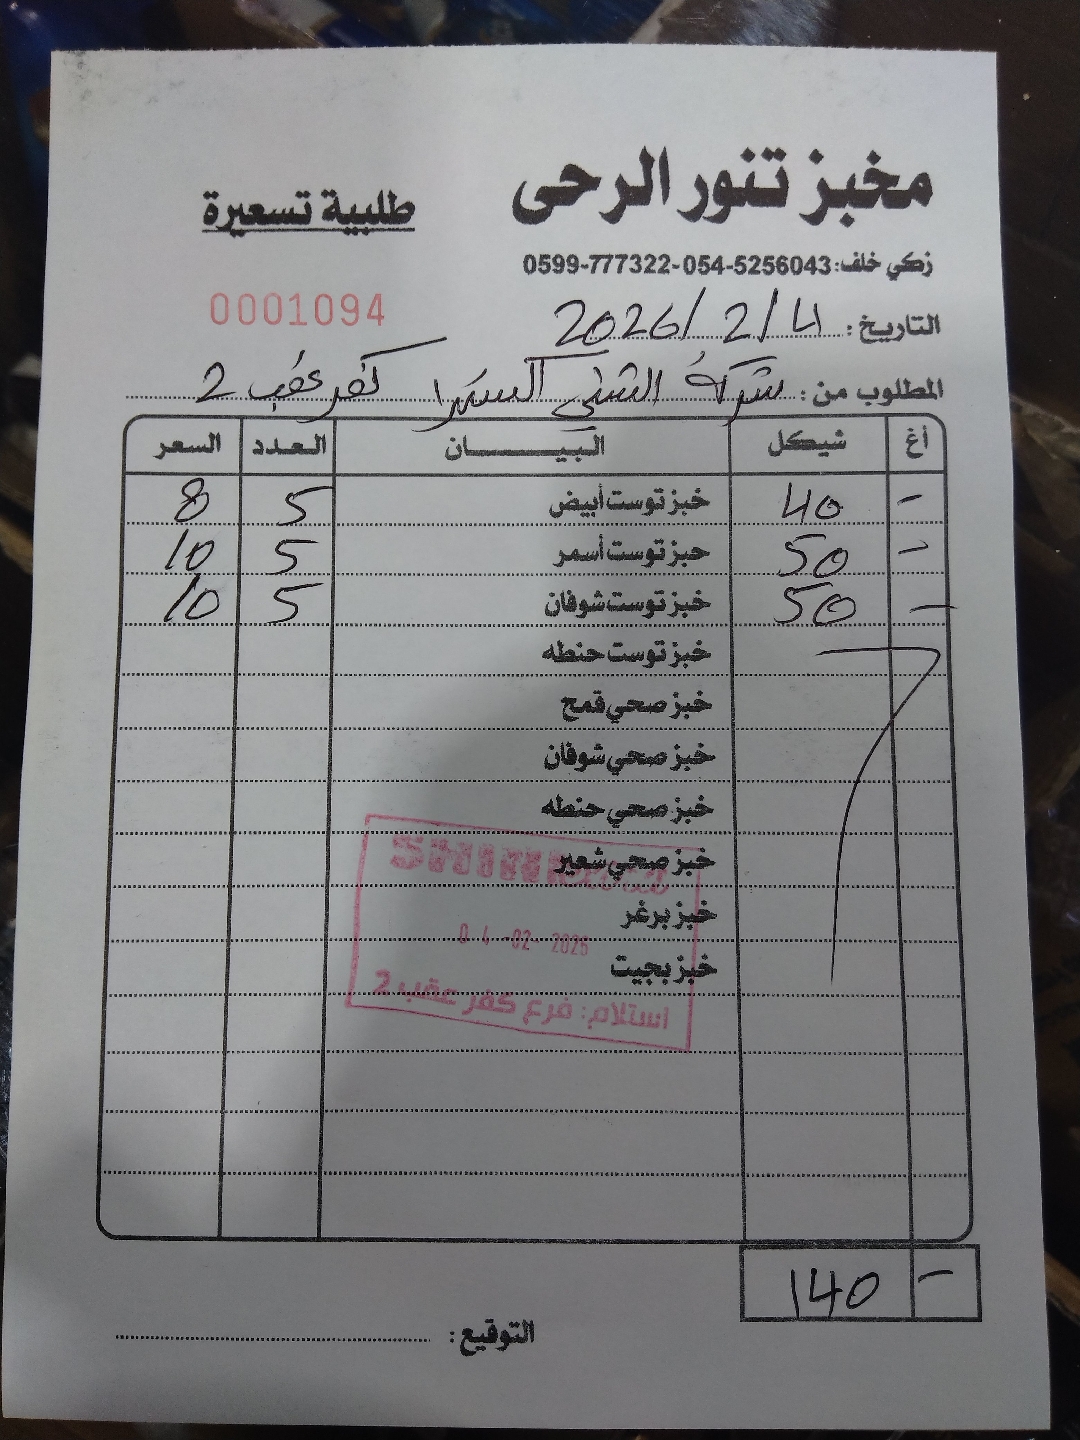 مخبز تنور الرحى
طلبية تسعيرة
زكي خلف: 054-5256043-0599-777322
0001094
التاريخ: 2026/2/4
المطلوب من: شركة الشني اكسترا كفر عقب 2
أغ شيكل البيــــــان العدد السعر
- 40 خبز توست أبيض 5 8
- 50 خبز توست أسمر 5 10
- 50 خبز توست شوفان 5 10
خبز توست حنطه
خبز صحي قمح
خبز صحي شوفان
خبز صحي حنطه
خبز صحي شعير
خبز برغر
04-02-2026
خبز بجيت
استلام: فرع كفر عقب 2
- 140
التوقيع: